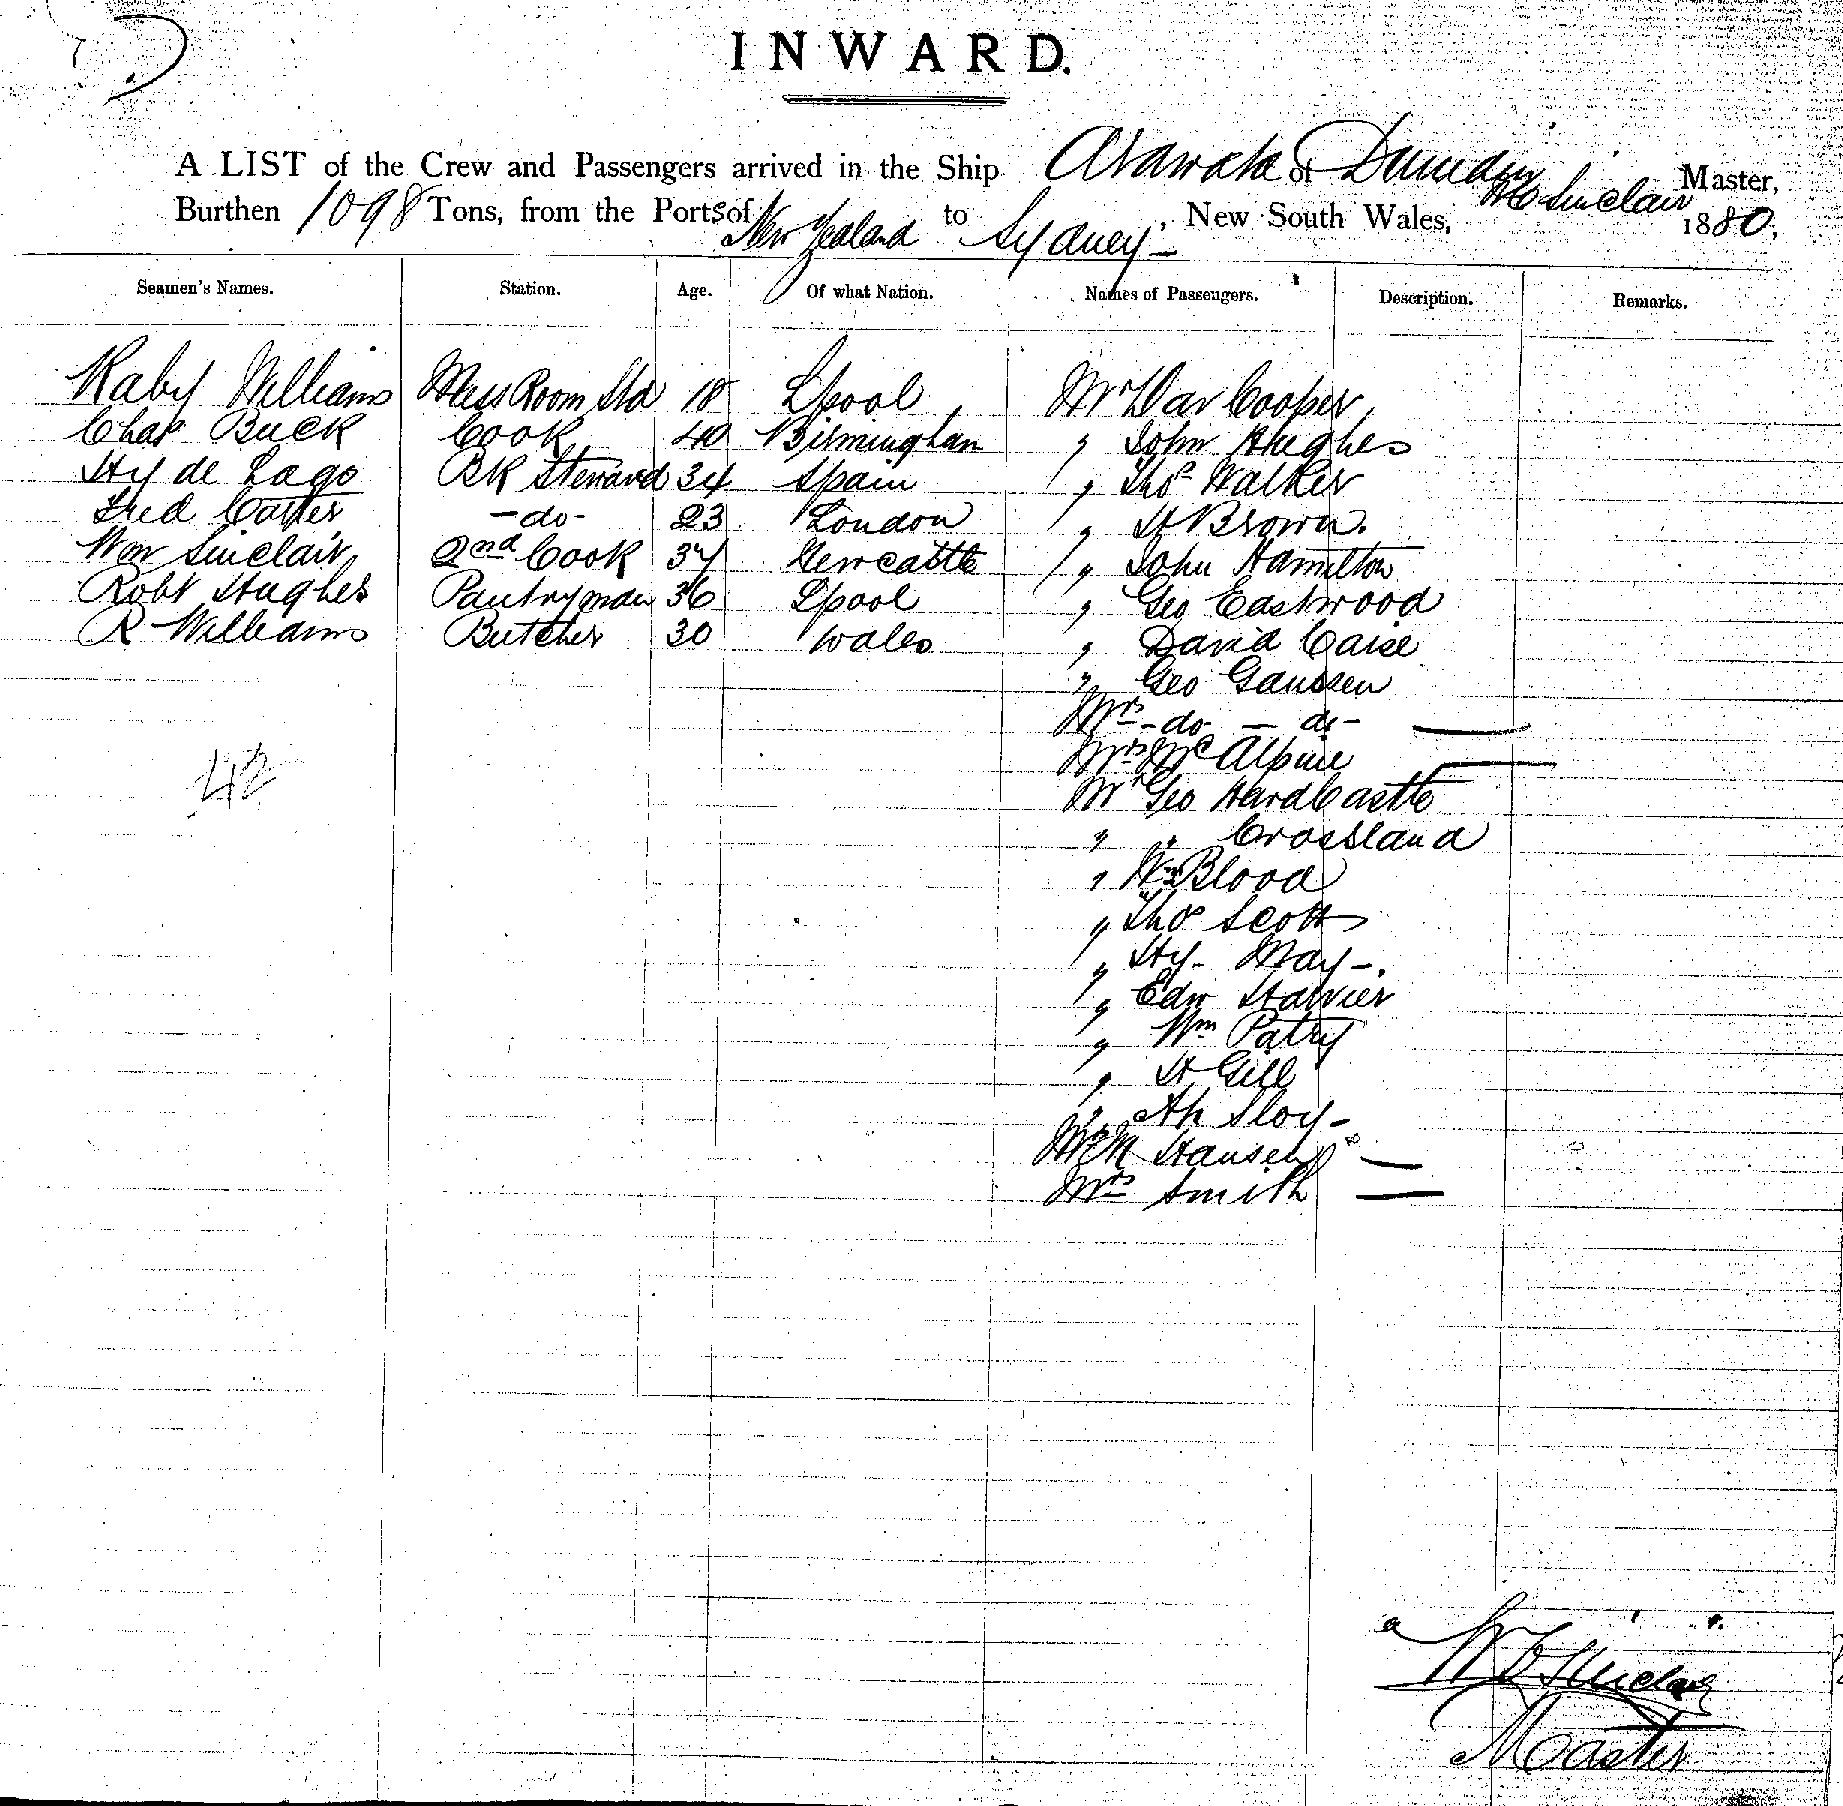 INWARD.
A LIST of the Crew and Passengers arrived in the Ship Arawata of Dunedin Sinclair Master,
Burthen 1098 Tons, from the Ports of New Zealand to Sydney, New South Wales, 1880,
Seamen's Names. Station. Age. Of what Nation. Names of Passengers. Description. Remarks.
Raby Williams Mess Room Std 18 Lpool Mr Dav Cooper
Chas Buck Cook 40 Birmingham " John Hughes
Hy de Lago BK Steward 34 Spain " Thos Walker
Fred Carter -do- 23 London " H Brown.
Wm Sinclair 2nd Cook 34 Newcastle " John Hamilton
Robt Hughes Pantryman 36 Lpool " Geo Eastwood
R Williams Butcher 30 Wales " David Caise
" Geo Ganssen
Mrs -do- - do-
Mrs McAlpine
42
Mr Geo HardCastle
" " Crossland
" Wm Blood
" Thos Scott
" Hy- May-.
" Edw Harrier
" Wm Patry
" H Gill
" Ah Sloy-
Hansen
Mrs Smith
Sinclair
Master